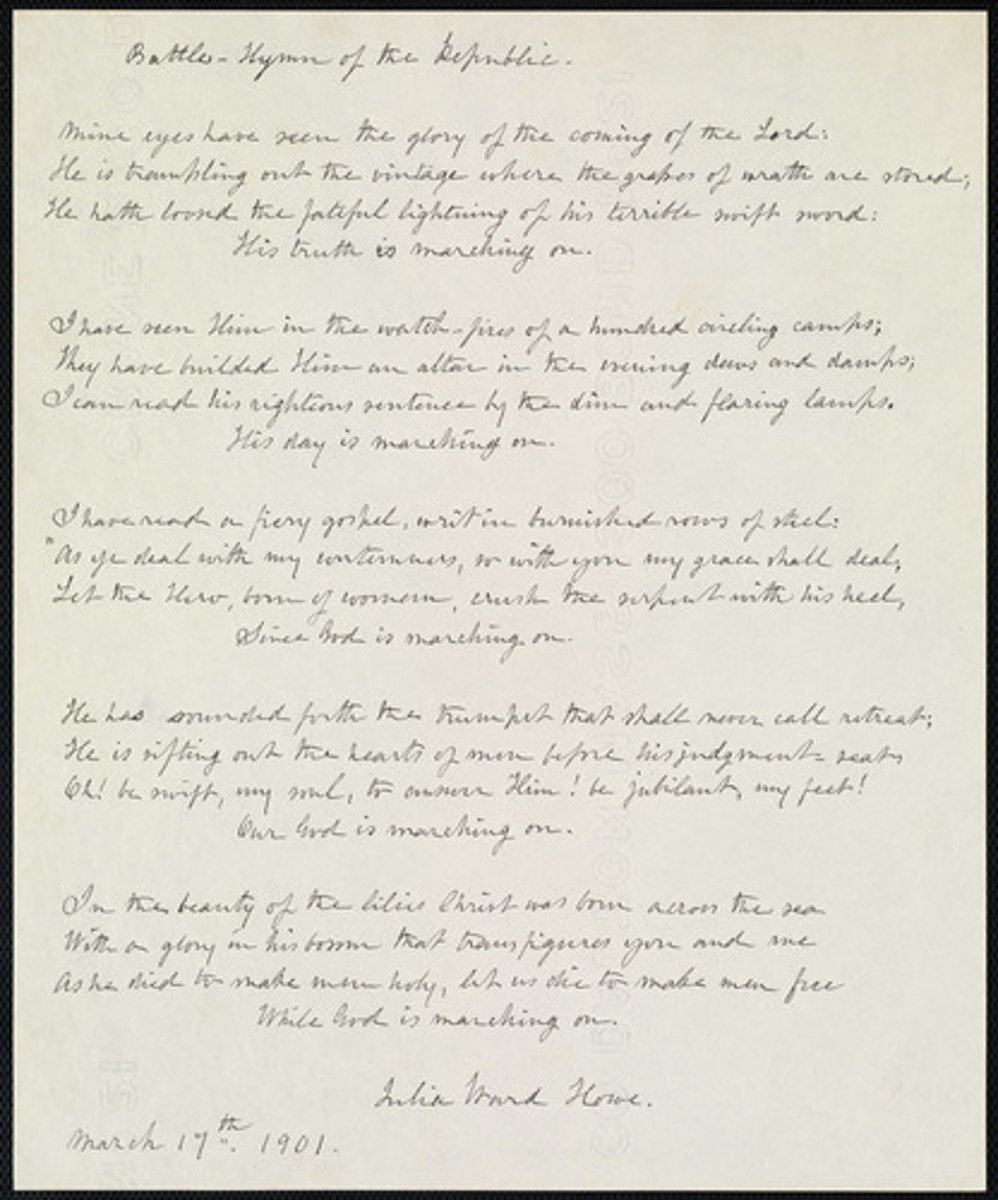 Battle-Hymn of the Republic.
Mine eyes have seen the glory of the coming of the Lord:
He is trampling out the vintage where the grapes of wrath are stored;
He hath loosed the fateful lightning of his terrible swift sword:
His truth is marching on.
I have seen Him in the watch-fires of a hundred circling camps;
They have builded Him an altar in the evening dews and damps;
I can read his righteous sentence by the dim and flaring lamps.
His day is marching on.
I have read a fiery gospel, writ in burnished rows of steel:
"As ye deal with my contemners, so with you my grace shall deal,
Let the Hero, born of woman, crush the serpent with his heel,
Since God is marching on.
He has sounded forth the trumpet that shall never call retreat;
He is sifting out the hearts of men before his judgment-seat,
Oh! be swift, my soul, to answer Him! be jubilant, my feet!
Our God is marching on.
In the beauty of the lilies Christ was born across the sea
With a glory in his bosom that transfigures you and me
As he died to make men holy, let us die to make men free
While God is marching on.
Julia Ward Howe.
March 17th. 1901.